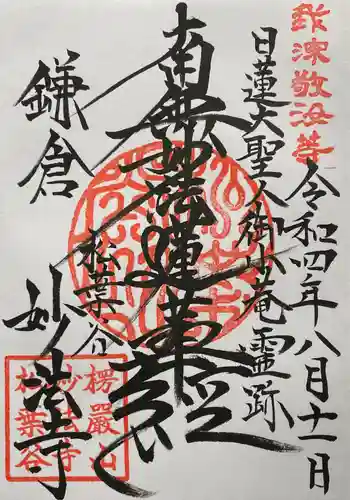 我深敬汝等
令和四年八月十一日
日蓮大聖人御小菴霊跡
南無妙法蓮華経
松葉谷
鎌倉
妙法寺
楞嚴山
妙法寺
松葉谷